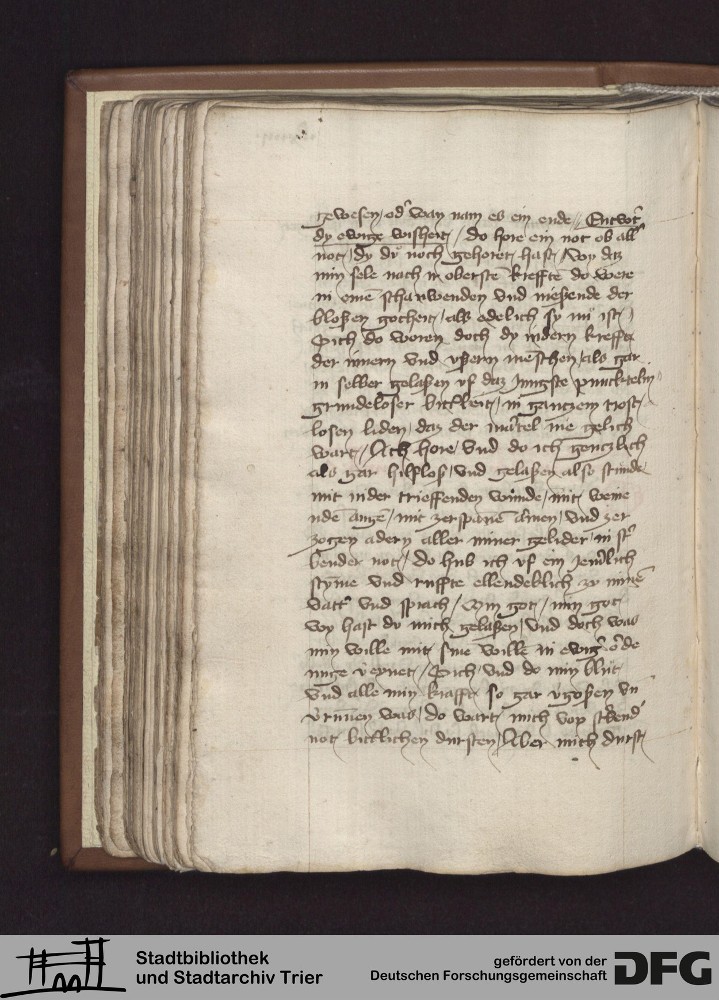 gewesen / od' wan nam es ein ende // Entwt'
dy ewige wisheit / do hore ein not ob all'
not / dy dv noch gehoret hast / Wy daz
min sele nach ir oberstē kreffte do were
in eine schauwenden vnd nießende der
bloßen gotheit / als edelich sy nü ist /
Sich do woren doch dy nidern kreffte
der innern vnd vßern menschen / als gar
in selber gelaßen vf daz Jungste puncktelin
grundeloser bitkeit / in ganczem trost
losen liden / daz der martel nie gelich
wart / Ach hore / vnd do ich genczlich
als gar hilflos / vnd gelaßen also stunde
mit nider trieffenden wunde / mit weine
nde augē / mit zerspanē armen / vnd zer
zogen adern aller miner gelider / in st'
bender not / do hub ich vf ein Jemlich
styme vnd ruffte ellendeklich zu minē
vatt' vnd sprach / Min got / min got
wy hast dv mich gelaßen / vnd doch was
min wille mit sine wille in ewig' o'de
nuge vereynet / Sich / vnd do min blut
vnd alle min kraffte so gar v'goßen vn
v'runen was / do wart mich von st'bend'
not bitklichen dursten / Aber mich durst
Stadtbibliothek
und Stadtarchiv Trier
gefördert von der
Deutschen Forschungsgemeinschaft
DFG